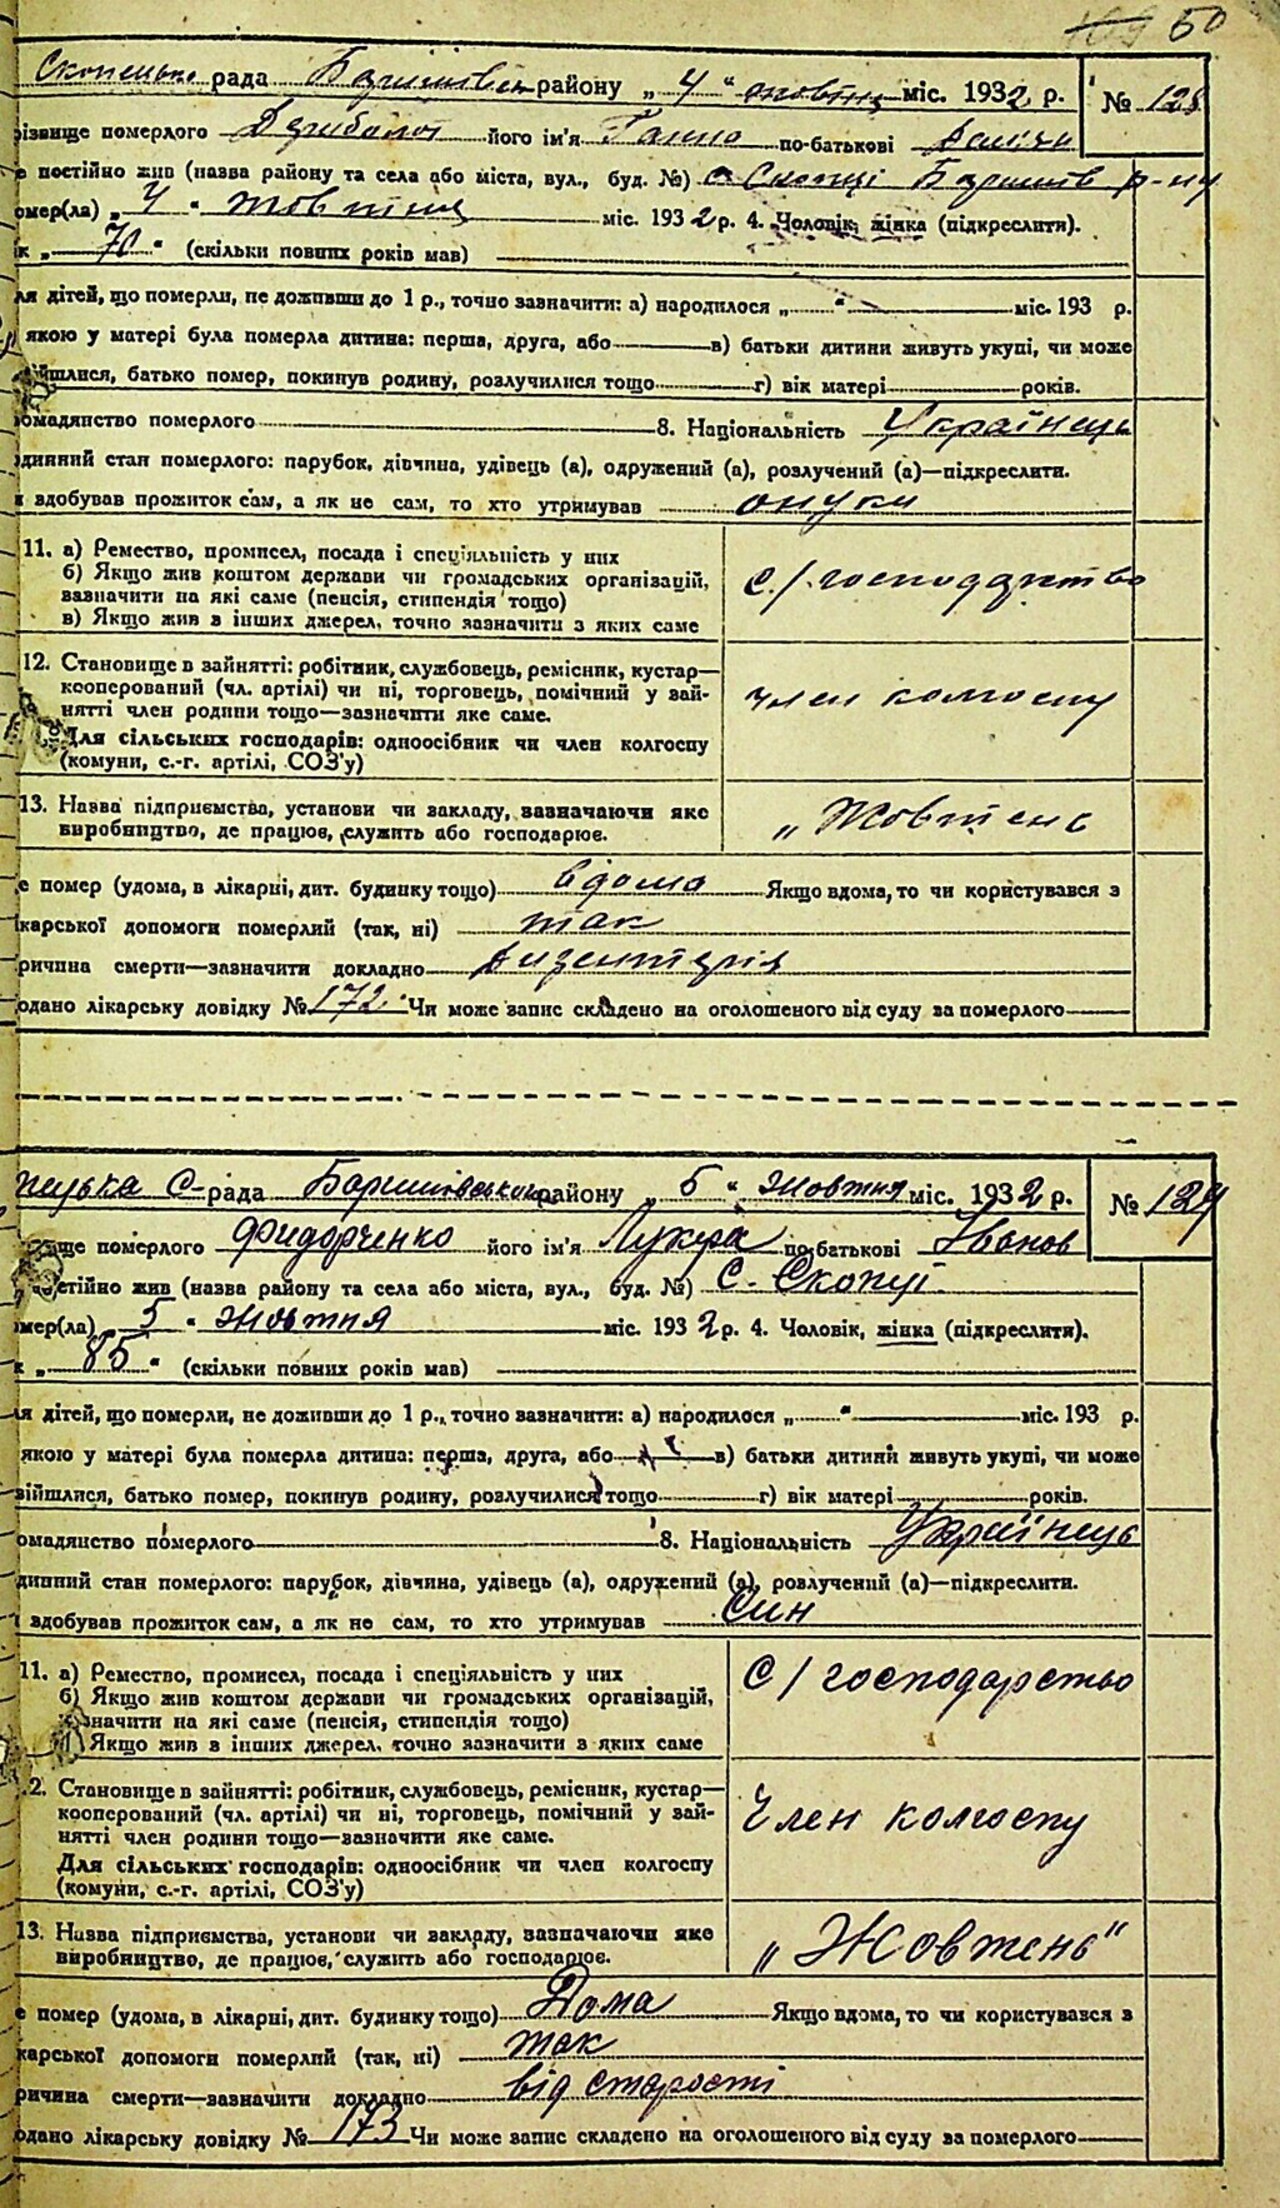 50
Скопецька рада Баришівськ району „ 4 “ жовтня міс. 1932 р. № 128
різвище померлого його ім'я Ганна по-батькові
е постійно жив (назва району та села або міста, вул., буд. №) с Скопці Баришів р-ну
омер(ла) „ 4 “ жовтня міс. 1932 р. 4. Чоловік, жінка (підкреслити).
ік „ 70 “ (скільки повних років мав)
ля дітей, що померли, не доживши до 1 р., точно зазначити: а) народилося „ “ міс. 193 р.
якою у матері була померла дитина: перша, друга, або в) батьки дитини живуть укупі, чи може
ійшлися, батько помер, покинув родину, розлучилися тощо г) вік матері років.
омадянство померлого 8. Національність Українець
одинний стан померлого: парубок, дівчина, удівець (а), одружений (а), розлучений (а)—підкреслити.
и здобував прожиток сам, а як не сам, то хто утримував онуки
11. а) Ремество, промисел, посада і спеціяльність у них
б) Якщо жив коштом держави чи громадських організацій,
зазначити на які саме (пенсія, стипендія тощо)
в) Якщо жив з інших джерел, точно зазначити з яких саме
с/господарство
12. Становище в зайнятті: робітник, службовець, ремісник, кустар—
кооперований (чл. артілі) чи ні, торговець, помічний у зай-
нятті член родини тощо—зазначити яке саме.
Для сільських господарів: одноосібник чи член колгоспу
(комуни, с.-г. артілі, СОЗ'у)
член колгоспу
13. Назва підприємства, установи чи закладу, зазначаючи яке
виробництво, де працює, служить або господарює.
„Жовтень
е помер (удома, в лікарні, дит. будинку тощо) вдома Якщо вдома, то чи користувався з
ікарської допомоги померлий (так, ні) так
ричина смерти—зазначити докладно дизентерія
одано лікарську довідку № 172. Чи може запис складено на оголошеного від суду за померлого
пецька С-рада Баришівського району „ 5 “ жовтня міс. 1932 р. № 129
ще померлого Фидорченко його ім'я Лукера по-батькові Іванов
остійно жив (назва району та села або міста, вул., буд. №) С. Скопці
омер(ла) 5 “ жовтня міс. 1932 р. 4. Чоловік, жінка (підкреслити).
к „ 85 “ (скільки повних років мав)
ля дітей, що померли, не доживши до 1 р., точно зазначити: а) народилося „ “ міс. 193 р.
якою у матері була померла дитина: перша, друга, або в) батьки дитини живуть укупі, чи може
зійшлися, батько помер, покинув родину, розлучилися тощо г) вік матері років.
омадянство померлого 8. Національність Українець
динний стан померлого: парубок, дівчина, удівець (а), одружений (а), розлучений (а)—підкреслити.
и здобував прожиток сам, а як не сам, то хто утримував Син
11. а) Ремество, промисел, посада і спеціяльність у них
б) Якщо жив коштом держави чи громадських організацій,
значити на які саме (пенсія, стипендія тощо)
) Якщо жив з інших джерел, точно зазначити з яких саме
С/господарство
2. Становище в зайнятті: робітник, службовець, ремісник, кустар—
кооперований (чл. артілі) чи ні, торговець, помічний у зай-
нятті член родини тощо—зазначити яке саме.
Для сільських господарів: одноосібник чи член колгоспу
(комуни, с.-г. артілі, СОЗ'у)
Член колгоспу
13. Назва підприємства, установи чи закладу, зазначаючи яке
виробництво, де працює, служить або господарює.
„Жовтень“
е помер (удома, в лікарні, дит. будинку тощо) Дома Якщо вдома, то чи користувався з
карської допомоги померлий (так, ні) так
ричина смерти—зазначити докладно від старості
одано лікарську довідку № 173 Чи може запис складено на оголошеного від суду за померлого